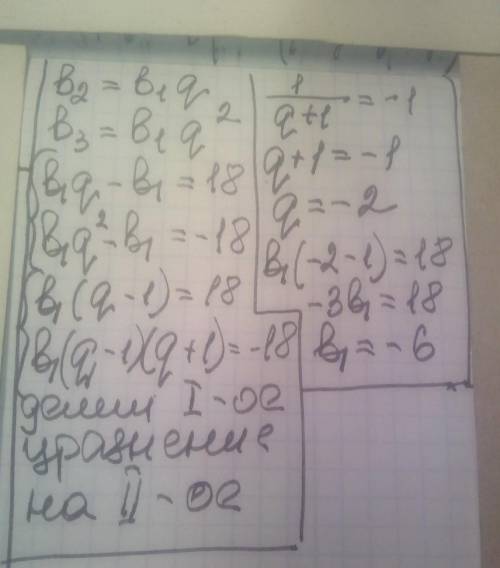 в₂ = в₁q
в₃ = в₁q²
в₁q - в₁ = 18
в₁q² - в₁ = -18
в₁(q - 1) = 18
в₁(q - 1)(q + 1) = -18
делим I-ое
уравнение
на II-ое
1/(q+1) = -1
q + 1 = -1
q = -2
в₁(-2 - 1) = 18
-3в₁ = 18
в₁ = -6